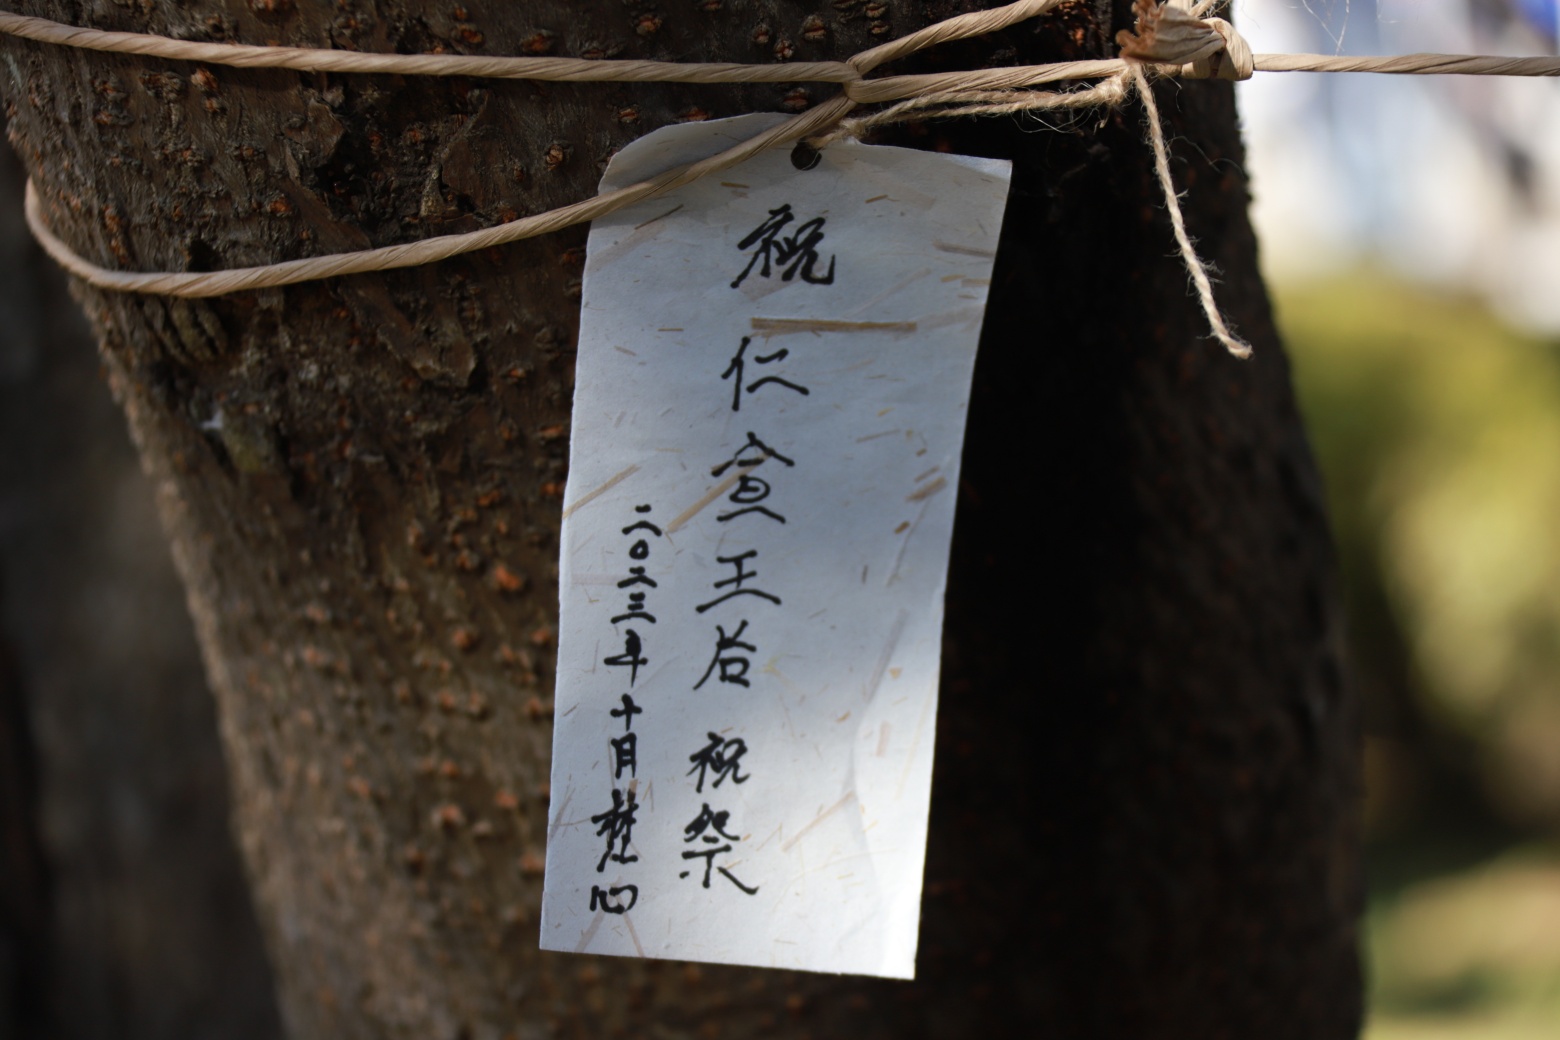 祝 仁宣王后 祝祭
二〇二三年十月 心